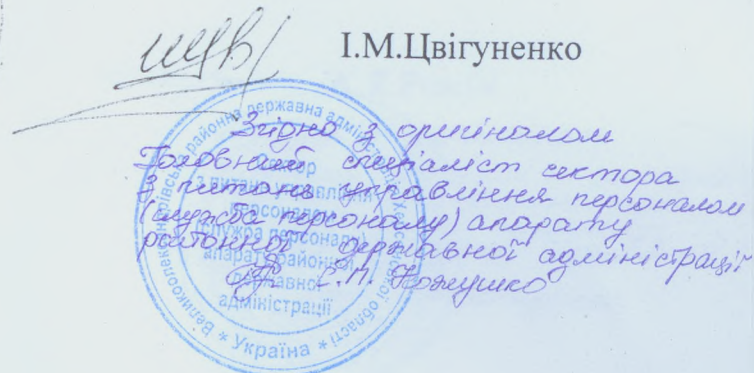 І.М.Цвігуненко
Згідно з оригіналом
Головний спеціаліст сектора
з питань управління персоналом
(служба персоналу) апарату
районної державної адміністрації
Є.П. Кожушко
Великоолександрівська районна державна адміністрація Херсонської області
* Україна *
Сектор
з питань управління
персоналом
(служба персоналу)
апарату районної
державної
адміністрації